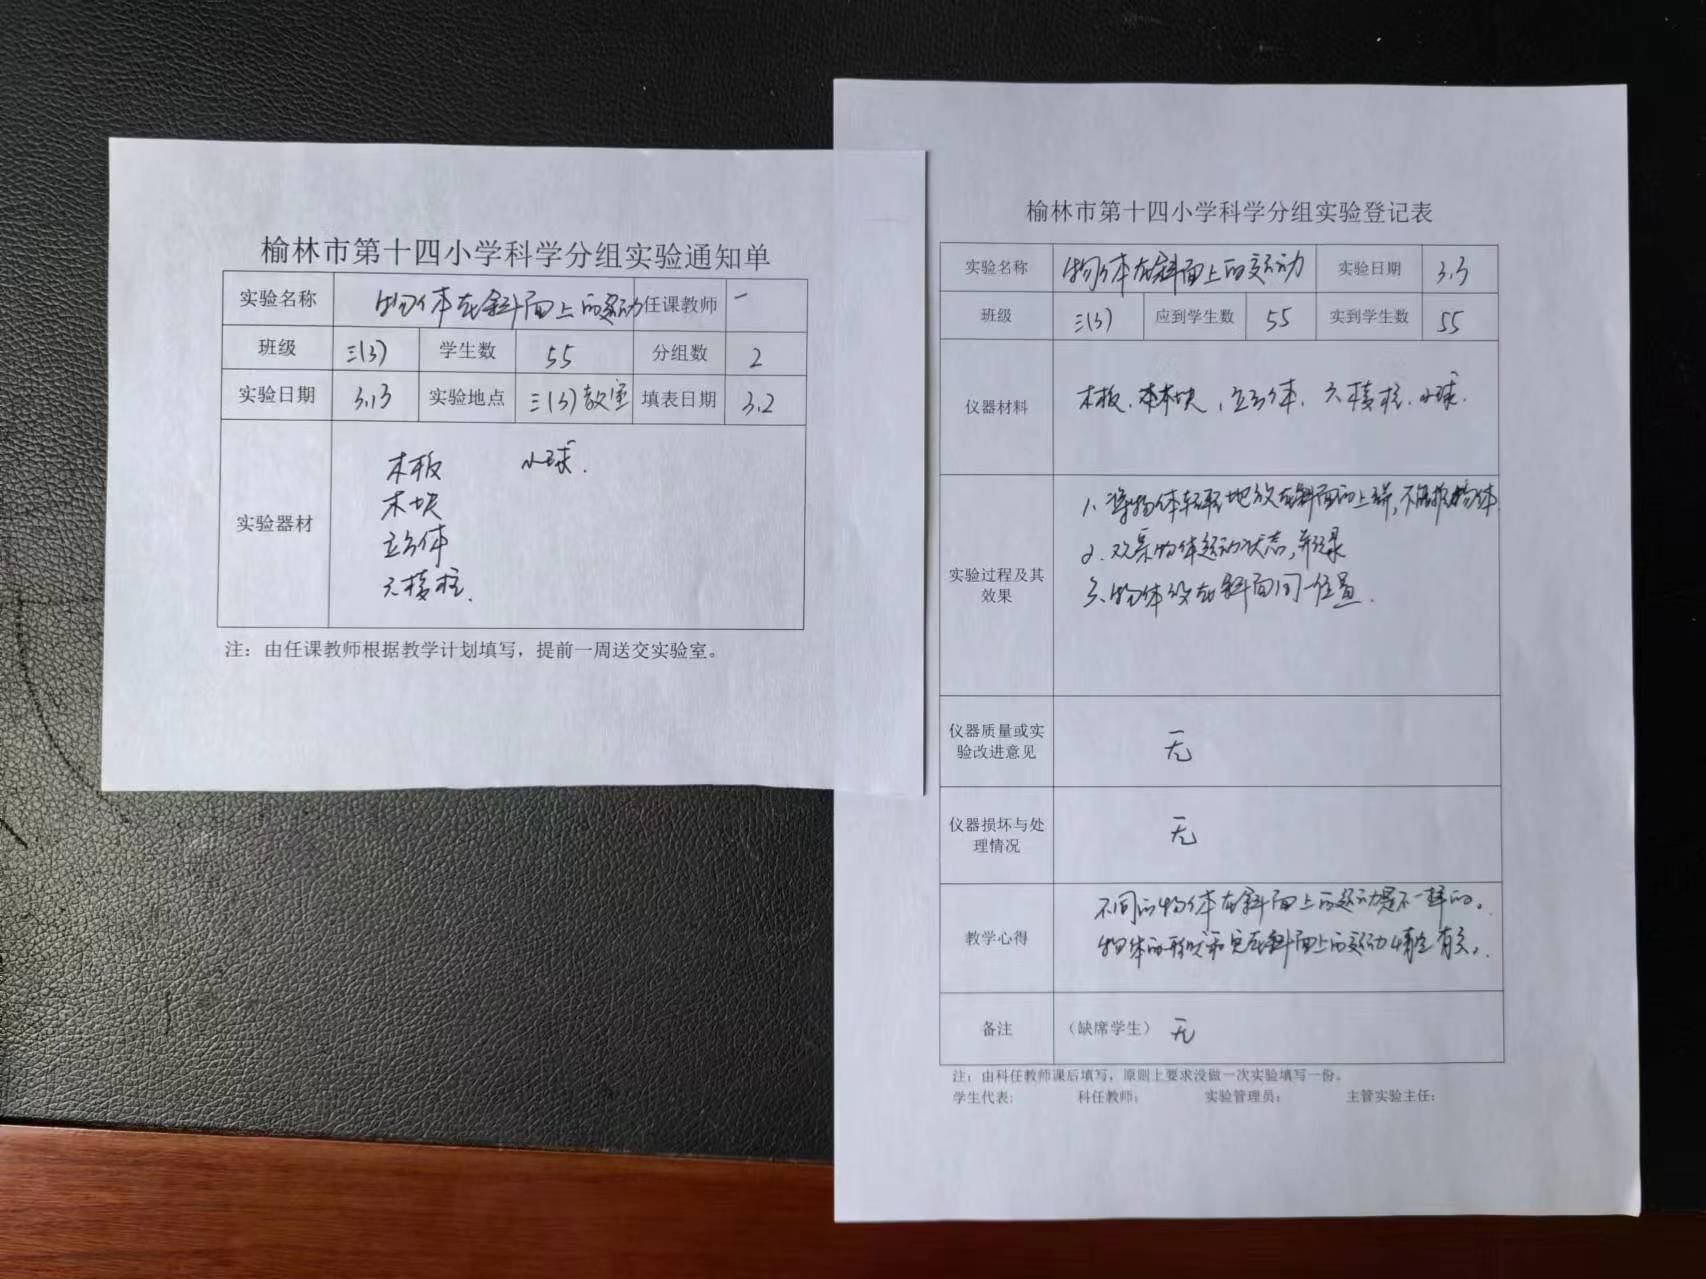 榆林市第十四小学科学分组实验通知单
实验名称 物体在斜面上的运动 任课教师
班级 三(3) 学生数 55 分组数 2
实验日期 3.13 实验地点 三(3)教室 填表日期 3.2
实验器材
木板 小球.
木块
立方体
六棱柱.
注：由任课教师根据教学计划填写，提前一周送交实验室。
榆林市第十四小学科学分组实验登记表
实验名称 物体在斜面上的运动 实验日期 3.3
班级 三(3) 应到学生数 55 实到学生数 55
仪器材料 木板、木块、立方体、六棱柱、小球.
实验过程及其效果
1、将物体轻轻地放在斜面的上端，不能推物体.
2、观察物体运动状态，并记录
3、物体放在斜面同一位置.
仪器质量或实验改进意见 无
仪器损坏与处理情况 无
教学心得
不同的物体在斜面上的运动是不一样的。
物体的形状和它在斜面上的运动情况有关。
备注 （缺席学生） 无
注：由科任教师课后填写，原则上要求没做一次实验填写一份。
学生代表： 科任教师： 实验管理员： 主管实验主任：